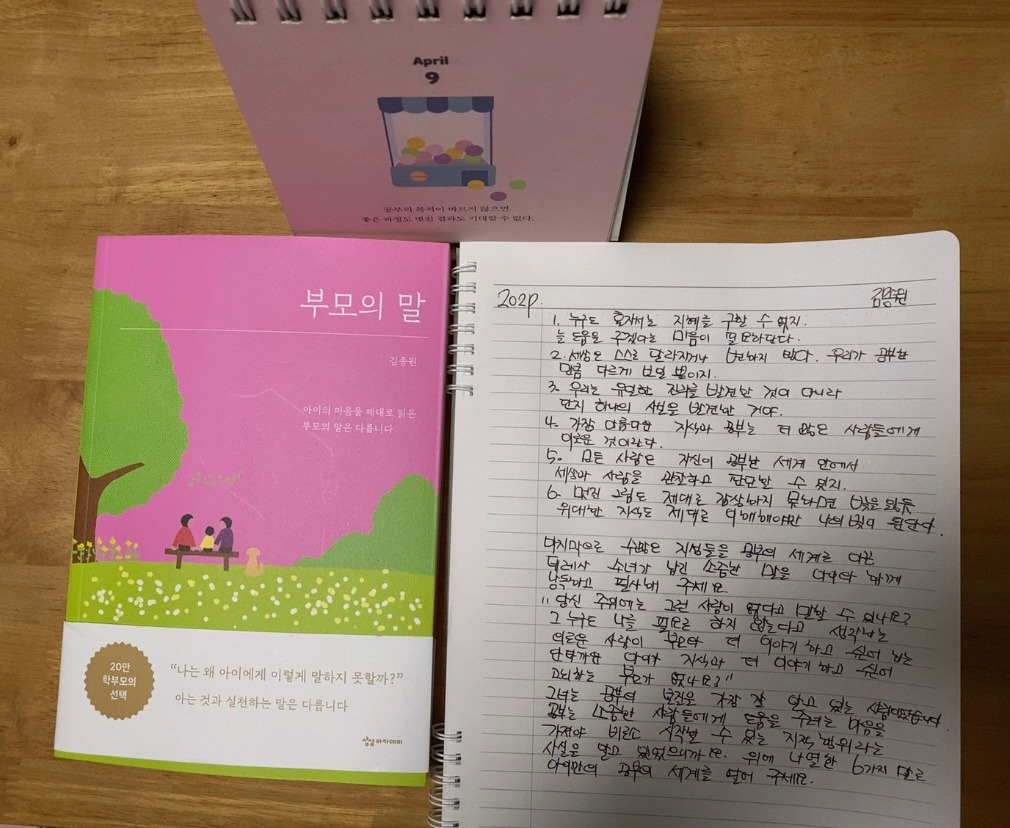 April
9
공부의 목적이 바르지 않으면
좋은 과정도 멋진 결과도 기대할 수 없다.
부모의 말
김종원
아이의 마음을 제대로 읽은
부모의 말은 다릅니다
20만
학부모의
선택
“나는 왜 아이에게 이렇게 말하지 못할까?”
아는 것과 실천하는 말은 다릅니다
상상아카데미
202p.
김종원
1. 누구도 혼자서는 지혜를 구할 수 없지.
늘 도움을 주겠다는 마음이 필요하단다.
2. 세상은 스스로 달라지거나 변하지 않다. 우리가 공부한
만큼 다르게 보일 뿐이지.
3. 우리는 유일한 진리를 발견한 것이 아니라
단지 하나의 사실을 발견한 거야.
4. 가장 아름다운 지식과 공부는 더 많은 사람들에게
이로운 것이란다.
5. 모든 사람은 자신이 공부한 세계 안에서
세상과 사람을 관찰하고 판단할 수 있지.
6. 멋진 그림도 제대로 감상하지 못하면 빛을 잃듯
위대한 지식도 제대로 이해해야만 나의 빛이 된단다.
마지막으로 수많은 지성들을 공부의 세계로 이끈
테레사 수녀가 남긴 소중한 말을 아이와 함께
낭독하고 필사해 주세요.
"당신 주위에는 그런 사람이 없다고 말할 수 있나요?
그 누구도 나를 필요로 하지 않는다고 생각하는
외로운 사람이 부모와 더 이야기 하고 싶어 하는
안타까운 아이가 자식과 더 이야기 하고 싶어
고뇌하는 부모가 없나요?"
그녀는 공부의 본질을 가장 잘 알고 있는 사람이었습니다
공부는 소중한 사람들에게 도움을 주려는 마음을
가져야 비로소 시작할 수 있는 지적 행위라는
사실을 알고 있었으니까요. 위에 나열한 6가지 말로
아이만의 공부의 세계를 열어 주세요.